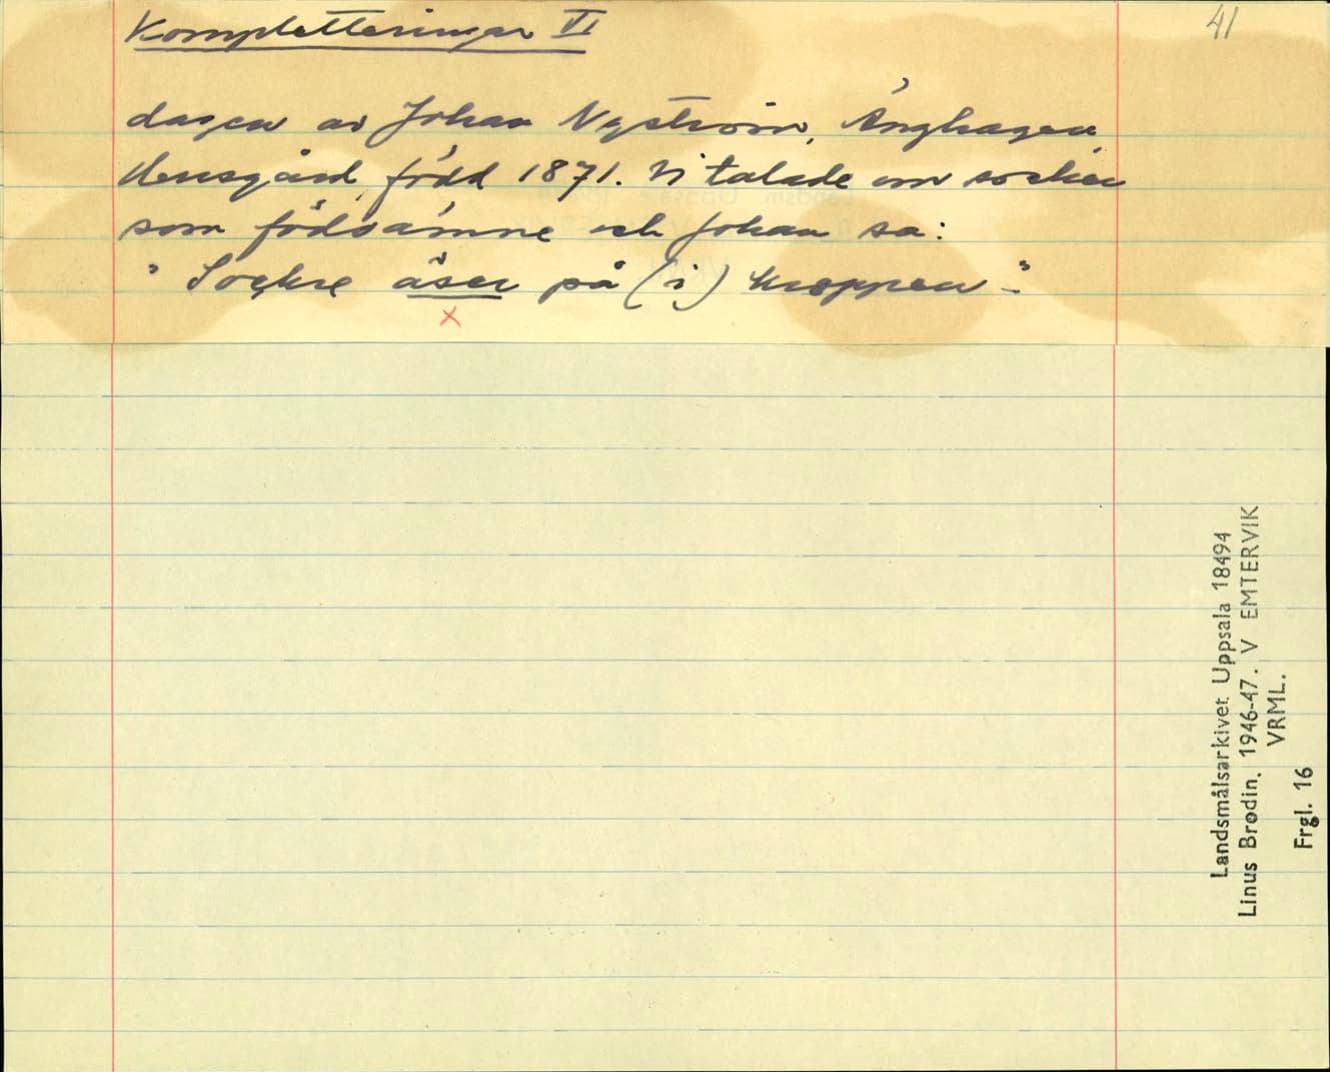 Kompletteringar VI
41
dagen av Johan Nyström, Änghagen,
född 1871. Vi talade om socker
som födoämne och Johan sa:
" Sockre åser på (i) kroppen".
x
Landsmålsarkivet Uppsala 18494
Linus Brodin. 1946-47. V EMTERVIK
VRML.
Frgl. 16